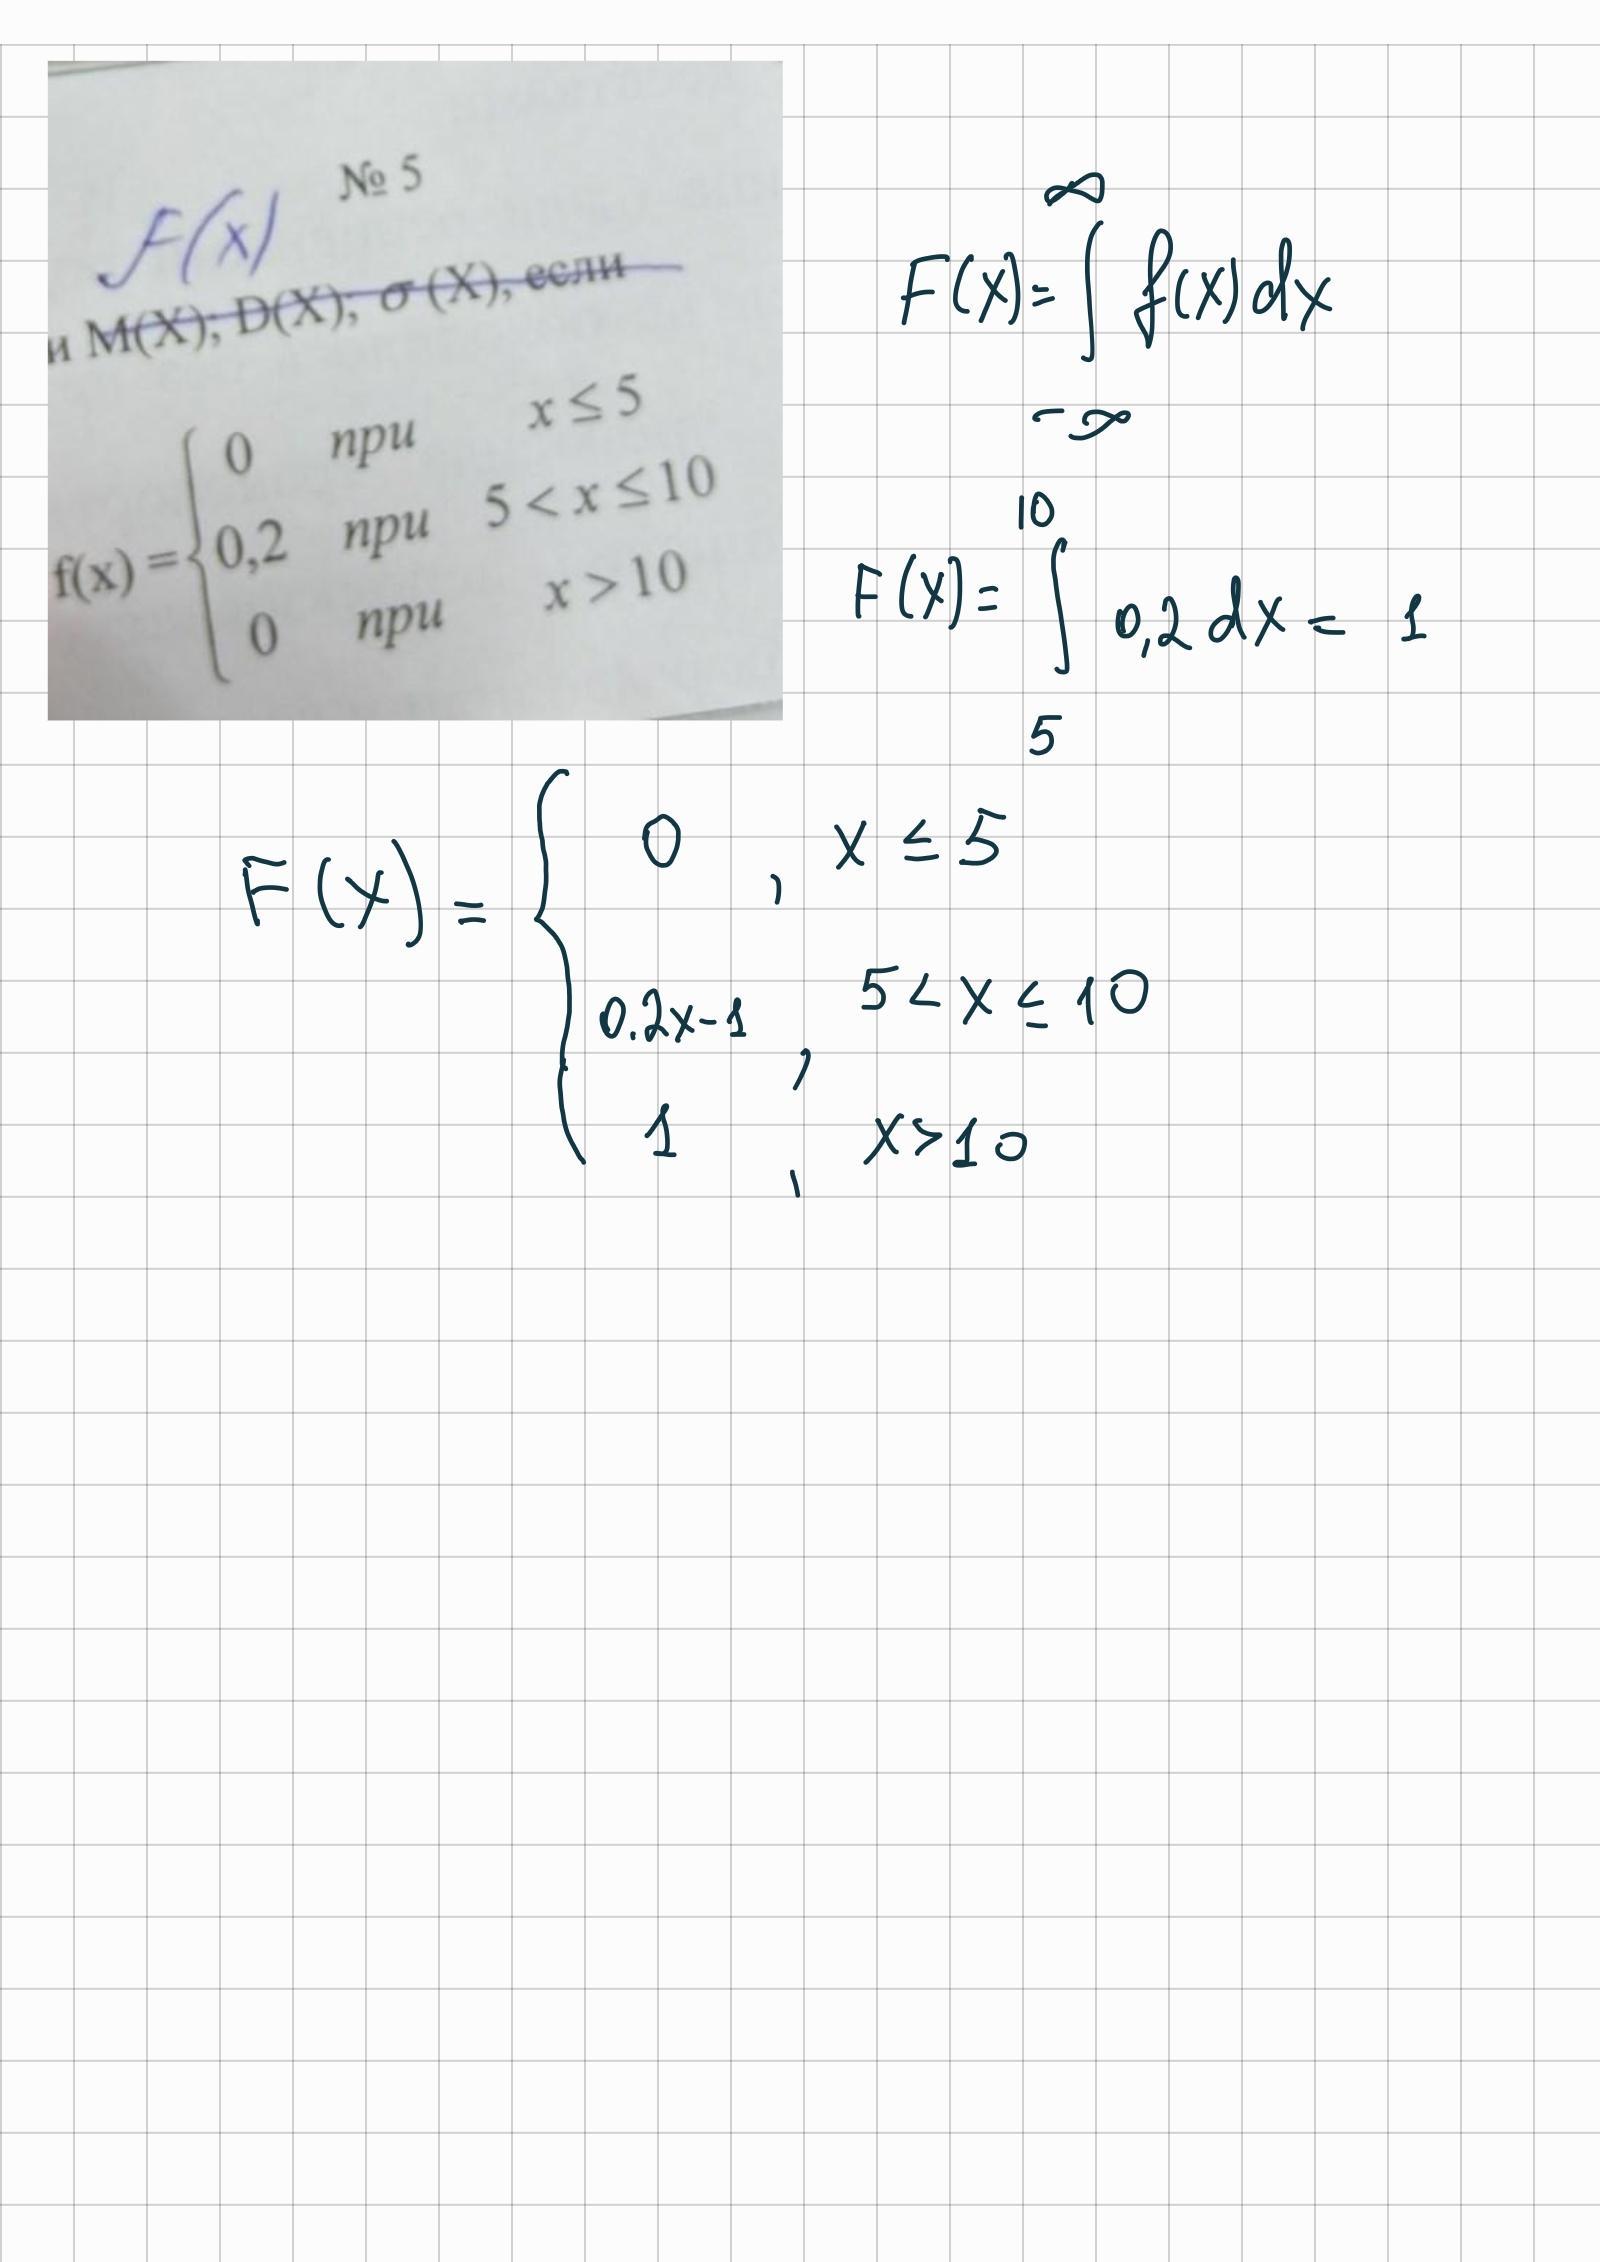 № 5
F(x)
и M(X); D(X); σ (X), если
f(x) = { 0 при x ≤ 5
0,2 при 5 < x ≤ 10
0 при x > 10
F(x) = ∫_{-∞}^{∞} f(x) dx
F(x) = ∫_{5}^{10} 0,2 dx = 1
F(x) = { 0 , x ≤ 5
0.2x-1 , 5 < x ≤ 10
1 , x > 10